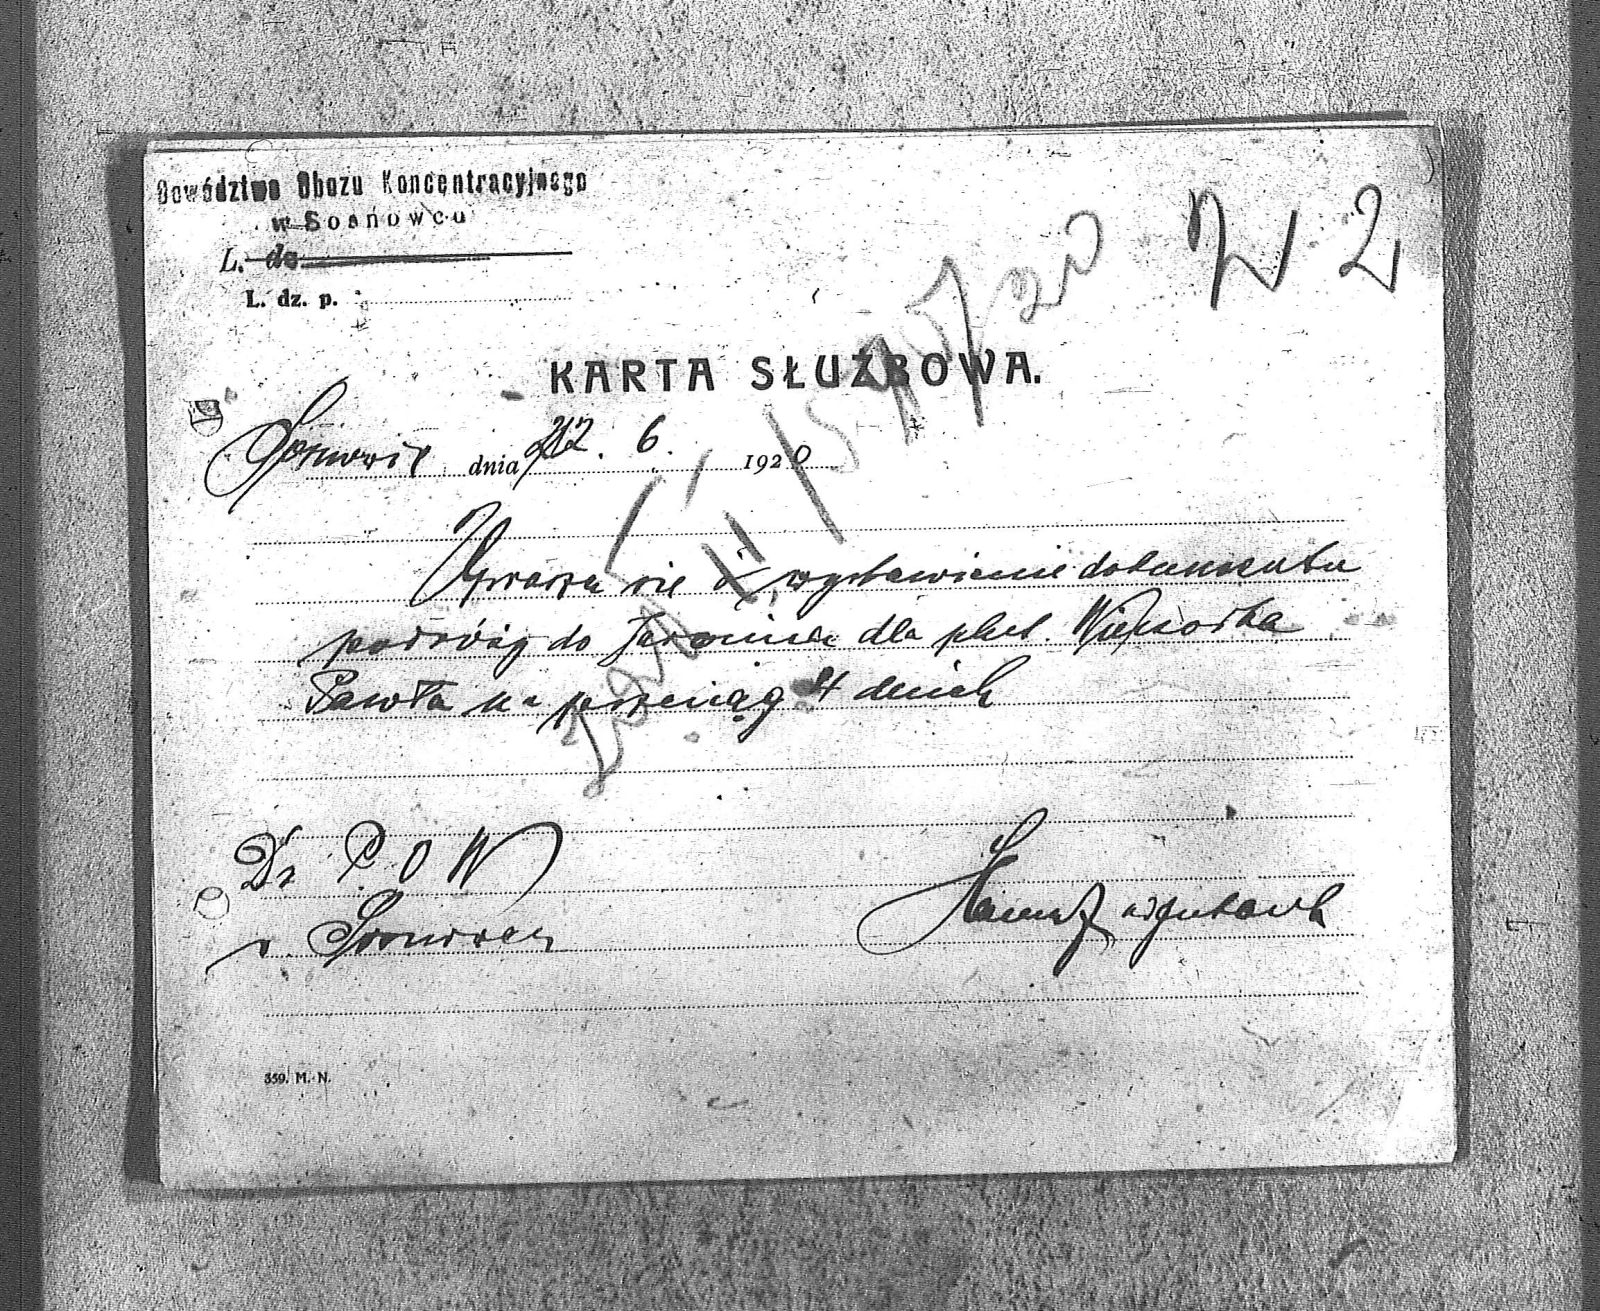 Dowództwo Obozu Koncentracyjnego
w Sosnowcu
22
L. do
L. dz. p.
KARTA SŁUŻBOWA.
Sosnowiec dnia 22. 6. 1920
Uprasza się o wystawienie dokumentu
podróży do dla plut. Wieczorka
Pawła na przeciąg 4 dnich
D P O W
w Sosnowcu
adjutant
359. M. N.